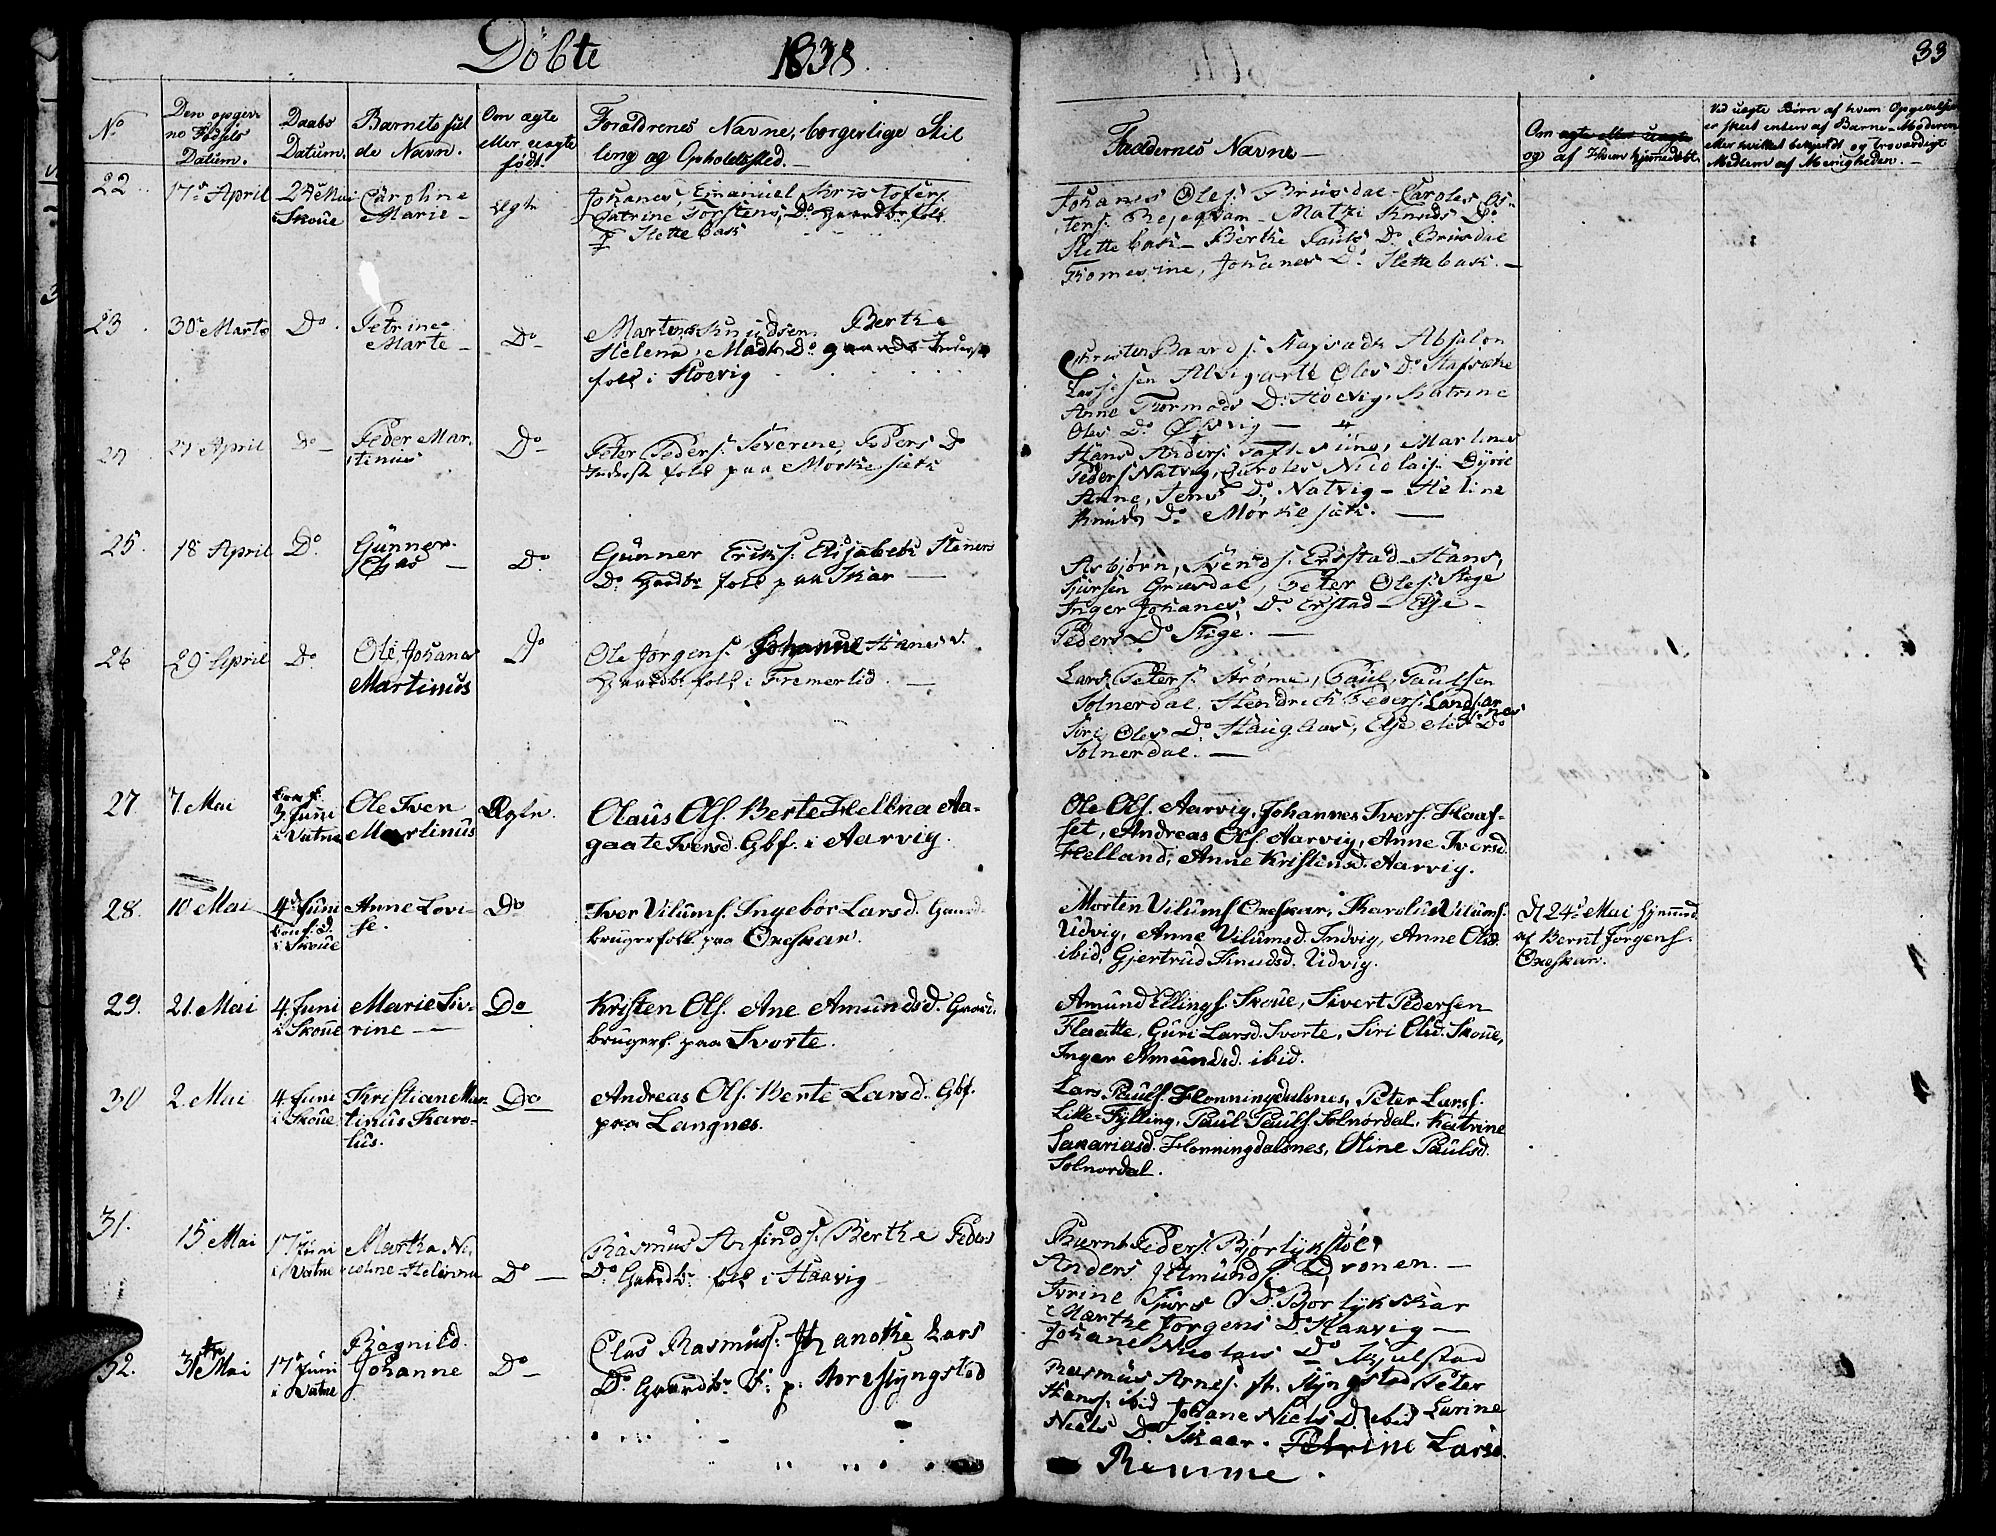 Döbte 1838.
33
No
Den opgiv-
ne Fødsels
Datum.
Daabs
Datum.
Barnets ful
de Navn.
Om ægte
eller uægte
født.
Forældrenes Navne, borgerlige Stil
ling og Opholdssted.
Faddernes Navne
Om ægte eller uægte
og af Hvem hjemedøbt
Ved uægte Børn af hvem Opgivelsen
er skeet enten af Barne-Moderen
eller hvilket bekjendt og troværdigt
Medlem af Menigheden.
22. 17de April 24de Mai
i Skoue
Caroline
Marie
Ægte
Johanes, Emanuel Kristofers.
Catrine Torstens, Do Gaardbr. folk
p Slettebak
Johanes Oles. Brusdal - Caroles Os-
tens.
Slettebak - Berthe Pauls Do Brusdal
Thomesine, Johanes Do Slettebak.
23. 30te Marts Do.
Petrine
Marte
Do
Marten Knudsen Berthe
Helena, Mads Do
folk i Stoevig
Anne Tormods Do Stoevig, Katrine
Oles Do
24 21 April Do
Peder Mar
tenius
Do
Peter Peders. Severine, Peders Do
Inderst folk paa Morkesæt
Hans Anders. Martines
Peders. Natvig, Caroles Nicolais.
Anne, Jens Do Natvig - Heline
Knuds Do Morkesæt.
25. 18 April Do.
Gunner
Do
Gunner Eriks. Elisabeth Steners
Do Gaardbr folk paa Skar
Asbjørn, Svends. Erstad - Hans,
Sjursen Grasdal, Peter Oles. Stege
Inger Johanes, Do Erstad - Else
Peders Do Stige.
26 29 April Do
Ole Johanes
Martinus
Do
Ole Jørgens. Johanne Hanes D.
Gaardbr folk i Fremerlid.
Lars Peters. Strøme, Paul, Paulsen
Solnerdal, Hendrich Peders.
Siri Oles Do Haugaas, Else Oles Do
Solnerdal.
27 7. Mai
Conf.
3 Juni
i Vatne
Ole Iven
Martinus
Ægte.
Olaus Ols. Berte Hellena Aa-
gaate Iversd. Gbf. i Aarvig.
Ole Ols. Aarvig, Johannes Ivers. Flaas-
set, Andreas Ols. Aarvig, Anne Iversd.
Helland, Anne Kristensd. Aarvig.
28. 10 Mai
4de Juni
Conf. d.
i Skoue
Anne Lovi-
se.
Do
Iver Vilums. Ingebor Larsd. Gaard-
brugerfolk paa Oxeskar.
Morten Vilums Oxeskar, Karolus Vilums.
Udvig, Anne Vilumsd. Indvig, Anne Olsd.
ibid, Gjertrud Knudsd. Udvig.
D 24de Mai hjemmd.
af Bernt Jørgens.
Oxeskar.
29. 21. Mai
4 Juni
i Skoue
Marie Siv-
rine
Do
Kristen Ols. Ane Amundsd. Gaard.
brugerf. paa Svorte.
Amund Ellings. Skoue, Sivert Pedersen
Flaatte, Guri Larsd. Svorte, Siri Olsd. Skoue,
Inger Amundsd. ibid.
30 2. Mai
4 Juni
i Skoue
Kristian Mar
tinus Karo-
lus.
Do
Andreas Ols. Berte Larsd. Gbf.
paa Langnes.
Lars Pauls Flonningdalsnes, Peter Lars.
Lille-Fylling, Paul Pauls. Solnordal, Katrine
Sakariasd. Flonningdalsnes, Oline Paulsd.
Solnordal.
31. 15 Mai
17 Juni
i Vatne
Martha Ni
coline Helenna
Do
Rasmus Anfinds. Berthe Peders
Do. Gaardbr folk i Haavig
Bernt Peders. Bjørlykstöe.
Anders Amunds. Dronen.
Ivrine Sjurs Do. Bjørlykskar
Marthe Jørgens Do Haavig
Johane Nicolais Do Kjulstad
32. 31te Mai
17de Juni
i Vatne
Ragnild
Johanne
Do
Clas Rasmuss. Lars
Do. Gaardbr. F. p.
Rasmus Arnes. St. Slyngstad Peter
Hans. ibid Johane Niels D ibid Larine
Niels Do Skaar. Petrine Larsd.
Remme.